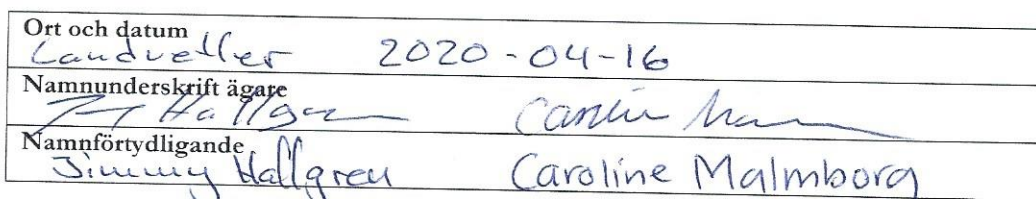 Ort och datum
Landvetter 2020-04-16
Namnunderskrift ägare
Hallgren
Namnförtydligande
Jimmy Hallgren Caroline Malmborg